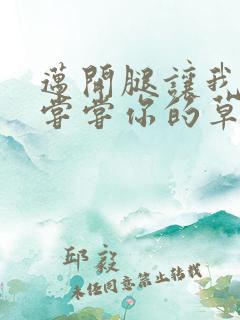 邁開腿讓我
嘗嘗你的草
邱毅
未经同意禁止转载